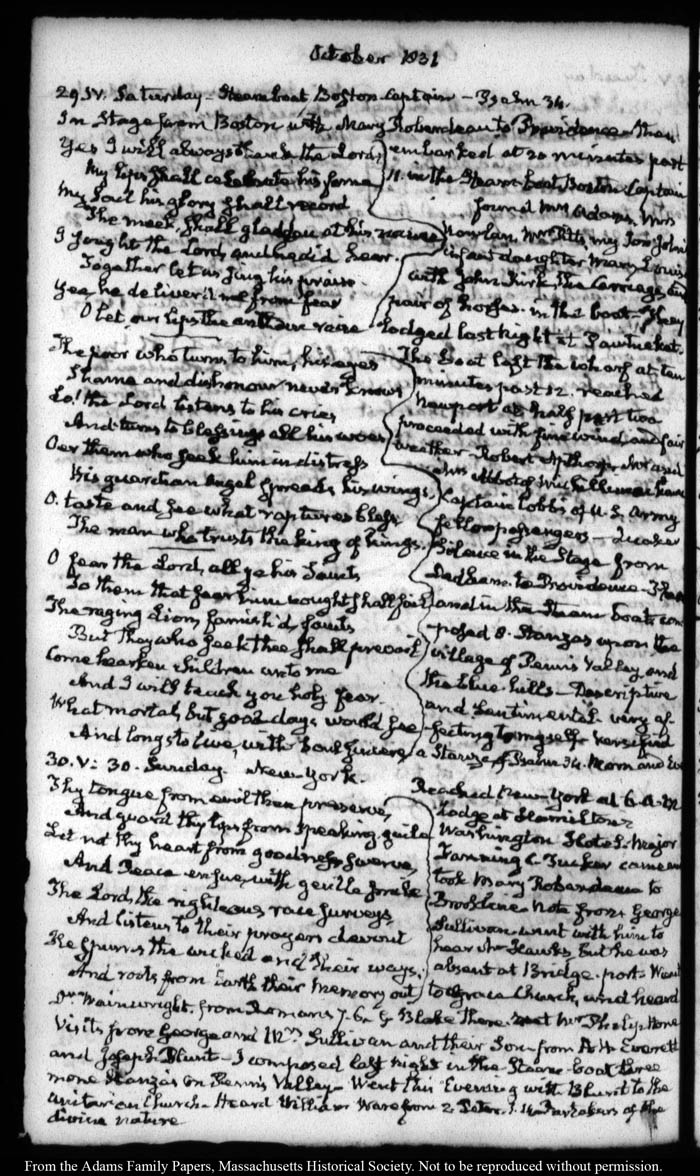 October 1831
29. IV. Saturday – Steamboat Boston Captain – Psalm 34.
In Stage from Boston with Mary Roberdeau to Providence – then
embarked at 20 minutes past
11. in the Steam-boat Boston Captain
found Mrs Adams, Mrs
Nowlan, Mrs my Son John
infant daughter Mary Louisa
with John Kirk, the Carriage and
pair of horses in the boat – They
lodged last Night at Pawtucket.
Yes I will always thank the Lord;
My lips shall celebrate his fame
My Soul his glory shall record
The meek, shall gladden at his name
I sought the Lord, and he did hear.
Together let us sing his praise
Yea, he deliver'd me from fear
O let our lips the anthem raise
The poor who turns to him, his eyes
Shame and dishonour never knows
Lo! the Lord listens to his cries
And turns to blessings all his woes
Oer them who seek him in distress
His guardian Angel spreads his wings,
O. taste and see what raptures bless
The man who trusts the king of kings.
O fear the Lord, all ye his Saints
To them that fear him nought shall fail
The raging Lion, famish'd, faints
But they who seek thee shall prevail
Come hearken children unto me
And I will teach you holy fear.
What mortal, but good days would see
And longs to live, with Soul sincere
The boat left the wharf at ten
minutes past 12. reached
Newport at half past two
proceeded with fine wind and fair
weather – Robert Apthorp
John Abbot
Captain Hobbs of U.S. Army
fellow passengers – Quaker
in the Stage from
Dedham to Providence – I
and in the Steam boat com-
posed 8. Stanzas upon the
village of Penn's Valley, and
the blue hills – Descriptive
and Sentimental – very af-
fecting to myself – versified
a Stanza of Psalm 34. Morn and Eve
30. V: 30. Sunday. New-York.
Reached New York at 6. A.M.
Lodge at Hamilton's
Washington Hotel. Major
Fanning C. Tucker came and
took Mary Roberdeau to
Brookline – Note from George
Sullivan – went with him to
hear Dr Hawks, but he was
absent at Bridge-port – Went
to Grace Church, and heard
Thy tongue from evil then preserve,
And guard thy lips from speaking guile
Let not thy heart from goodness swerve,
And Peace ensue, with gentle smile
The Lord, the righteous race surveys,
And listens to their prayers devout
He spurns the wicked and their ways;
And roots from Earth their memory out
Dr Wainwright. from Romans 7. 6. G Blake there. met her Philip Hone
Visits from George and Mrs Sullivan and their Son – from A. H. Everett
and Joseph Blunt – I composed last night in the Steam-boat three
more Stanzas on Penn's Valley – Went this Evening with Blunt to the
Unitarian Church – Heard William Ware from 2. Peter. 1. 4. Partakers of the
divine nature
From the Adams Family Papers, Massachusetts Historical Society. Not to be reproduced without permission.